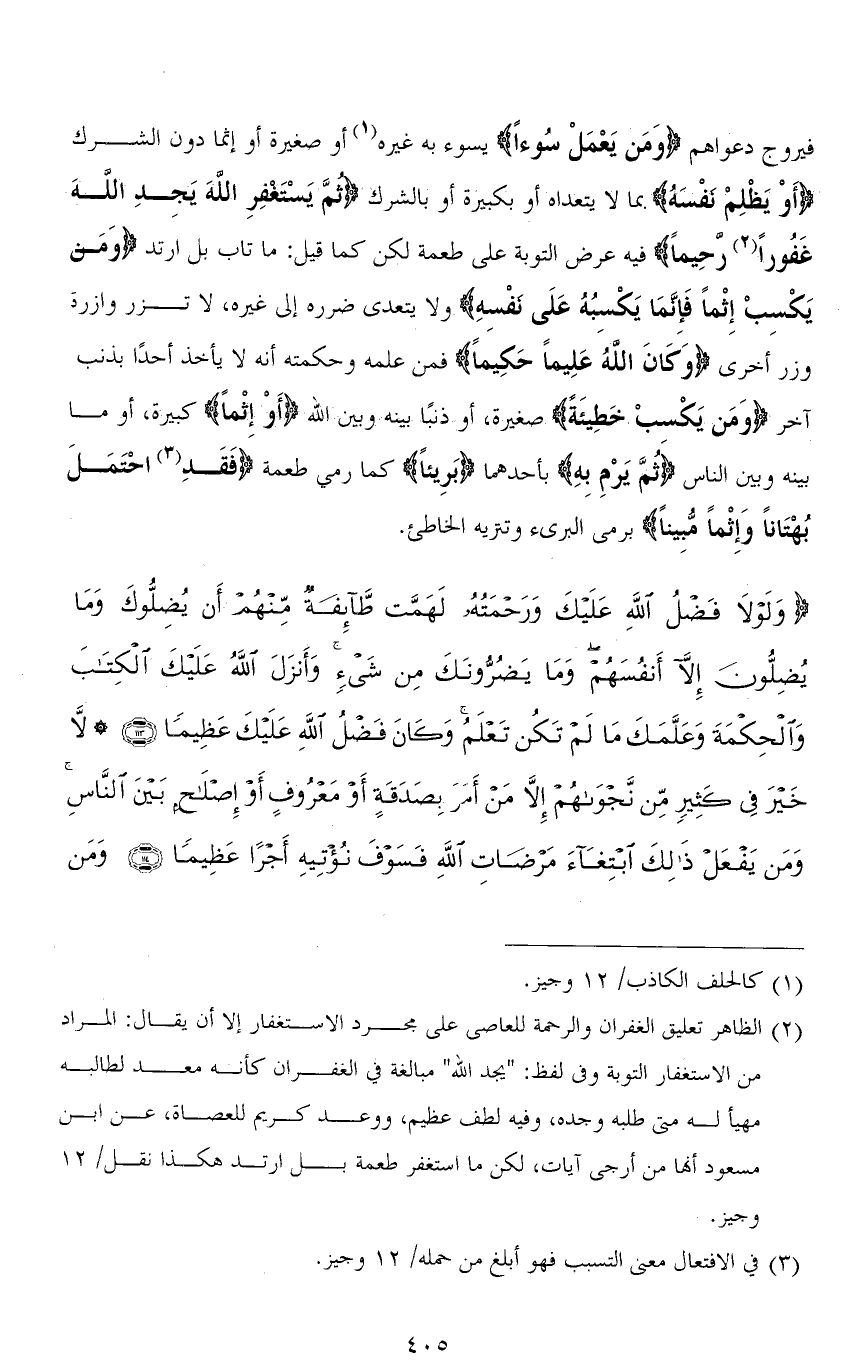 فيروج دعواهم ﴿وَمَن يَعْمَلْ سُوءاً﴾ يسوء به غيره(١) أو صغيرة أو إثما دون الشرك
﴿أَوْ يَظْلِمْ نَفْسَهُ﴾ بما لا يتعداه أو بكبيرة أو بالشرك ﴿ثُمَّ يَسْتَغْفِرِ اللَّهَ يَجِدِ اللَّهَ
غَفُوراً(٢) رَّحِيماً﴾ فيه عرض التوبة على طعمة لكن كما قيل: ما تاب بل ارتد ﴿وَمَن
يَكْسِبْ إِثْماً فَإِنَّمَا يَكْسِبُهُ عَلَى نَفْسِهِ﴾ ولا يتعدى ضرره إلى غيره، لا تزر وازرة
وزر أخرى ﴿وَكَانَ اللَّهُ عَلِيماً حَكِيماً﴾ فمن علمه وحكمته أنه لا يأخذ أحدًا بذنب
آخر ﴿وَمَن يَكْسِبْ خَطِيئَةً﴾ صغيرة، أو ذنبًا بينه وبين الله ﴿أَوْ إِثْماً﴾ كبيرة، أو ما
بينه وبين الناس ﴿ثُمَّ يَرْمِ بِهِ﴾ بأحدهما ﴿بَرِيئاً﴾ كما رمي طعمة ﴿فَقَدِ(٣) احْتَمَلَ
بُهْتَاناً وَإِثْماً مُّبِيناً﴾ برمى البرىء وتنزيه الخاطئ.
﴿وَلَوْلَا فَضْلُ ٱللَّهِ عَلَيْكَ وَرَحْمَتُهُۥ لَهَمَّت طَّآئِفَةٌ مِّنْهُمْ أَن يُضِلُّوكَ وَمَا
يُضِلُّونَ إِلَّآ أَنفُسَهُمْ ۖ وَمَا يَضُرُّونَكَ مِن شَىْءٍ ۚ وَأَنزَلَ ٱللَّهُ عَلَيْكَ ٱلْكِتَٰبَ
وَٱلْحِكْمَةَ وَعَلَّمَكَ مَا لَمْ تَكُن تَعْلَمُ ۚ وَكَانَ فَضْلُ ٱللَّهِ عَلَيْكَ عَظِيمًا ﴿١١٣﴾ ۞ لَّا
خَيْرَ فِى كَثِيرٍ مِّن نَّجْوَىٰهُمْ إِلَّا مَنْ أَمَرَ بِصَدَقَةٍ أَوْ مَعْرُوفٍ أَوْ إِصْلَٰحٍۭ بَيْنَ ٱلنَّاسِ ۚ
وَمَن يَفْعَلْ ذَٰلِكَ ٱبْتِغَآءَ مَرْضَاتِ ٱللَّهِ فَسَوْفَ نُؤْتِيهِ أَجْرًا عَظِيمًا ﴿١١٤﴾ وَمَن
(١) كالحلف الكاذب/ ١٢ وجيز.
(٢) الظاهر تعليق الغفران والرحمة للعاصى على مجرد الاستغفار إلا أن يقال: المراد
من الاستغفار التوبة وفى لفظ: "يجد الله" مبالغة في الغفران كأنه معد لطالبه
مهيأ له متى طلبه وجده، وفيه لطف عظيم، ووعد كريم للعصاة، عن ابن
مسعود أنها من أرجى آيات، لكن ما استغفر طعمة بل ارتد هكذا نقل/ ١٢
وجيز.
(٣) في الافتعال معنى التسبب فهو أبلغ من حمله/ ١٢ وجيز.
٤٠٥